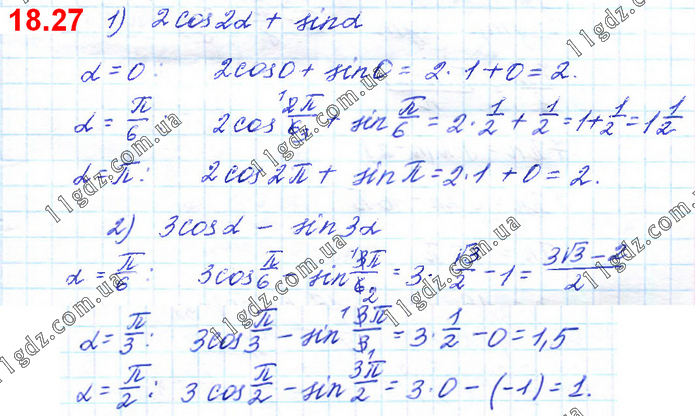 18.27 1) 2cos2α + sinα
α = 0: 2cos0 + sin0 = 2·1+0 = 2.
α = π/6 2cos 2π/6 + sin π/6 = 2·1/2 + 1/2 = 1+1/2 = 1 1/2
α = π: 2cos2π + sinπ = 2·1+0 = 2.
2) 3cosα − sin3α
α = π/6: 3cos π/6 − sin 3π/6 = 3·√3/2 − 1 = (3√3 − 2)/2
α = π/3: 3cos π/3 − sin 3π/3 = 3·1/2 − 0 = 1,5
α = π/2: 3cos π/2 − sin 3π/2 = 3·0 − (−1) = 1.
11gdz.com.ua